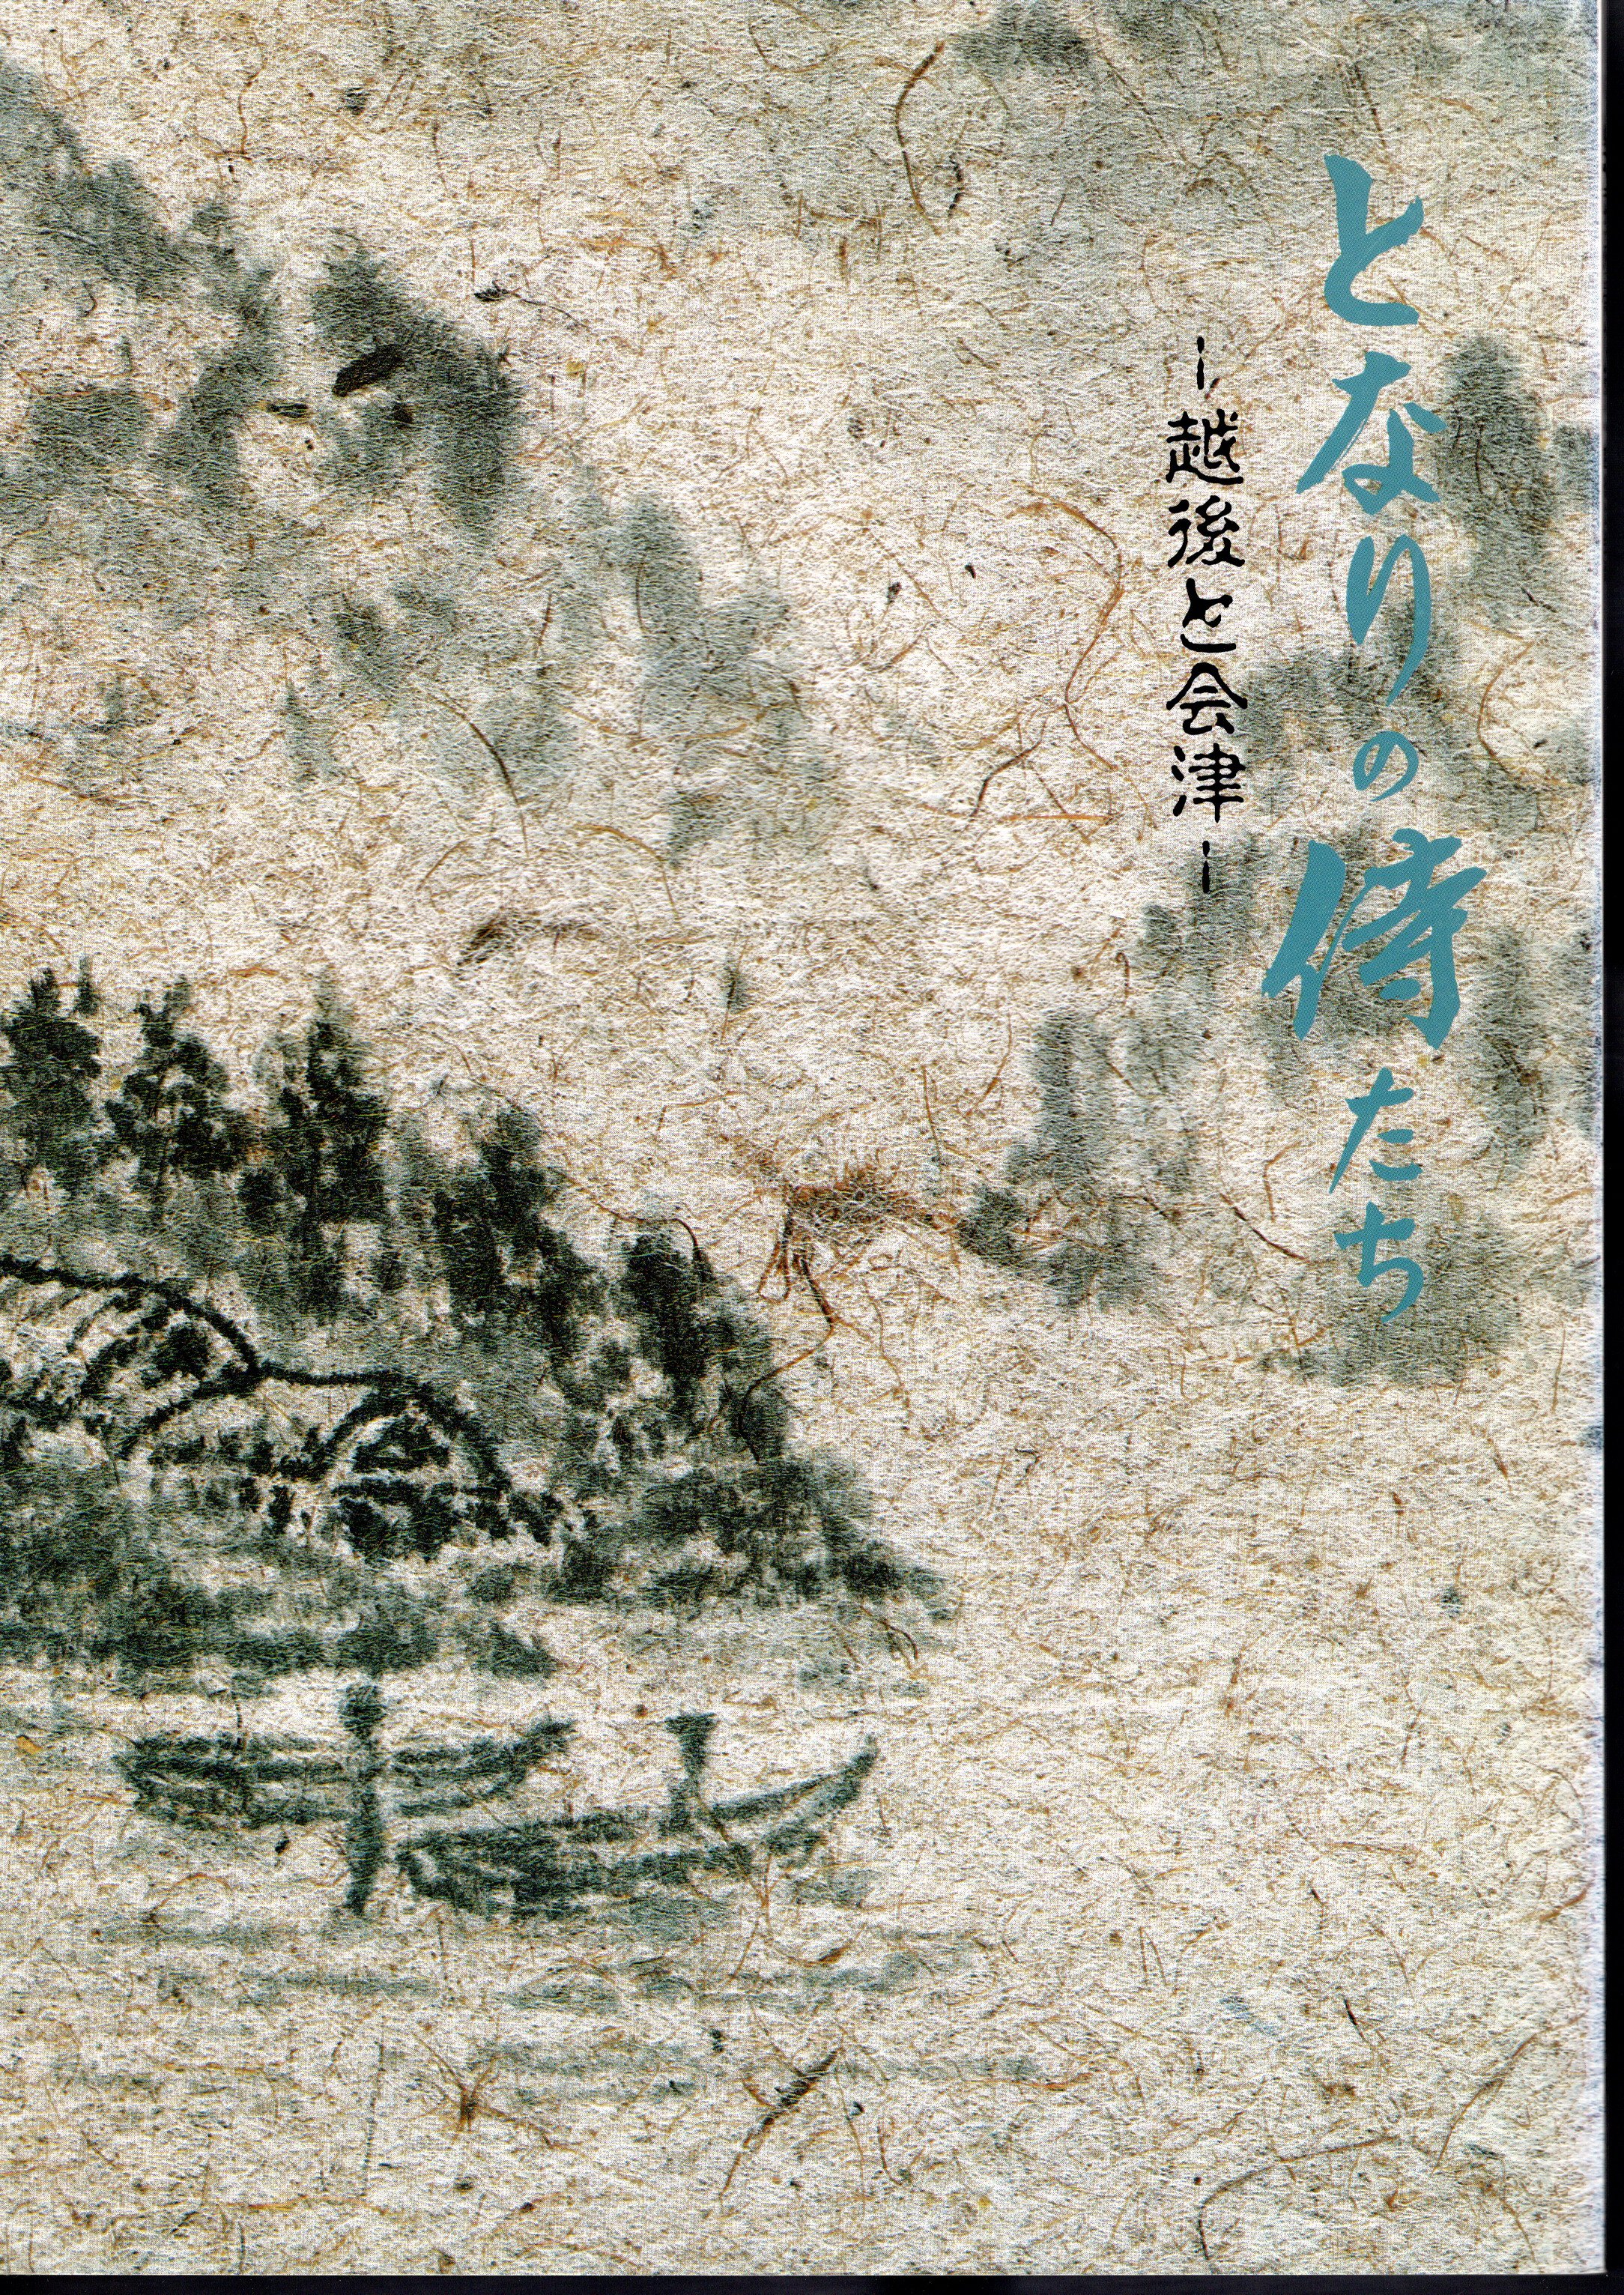 となりの侍たち
－越後と会津－